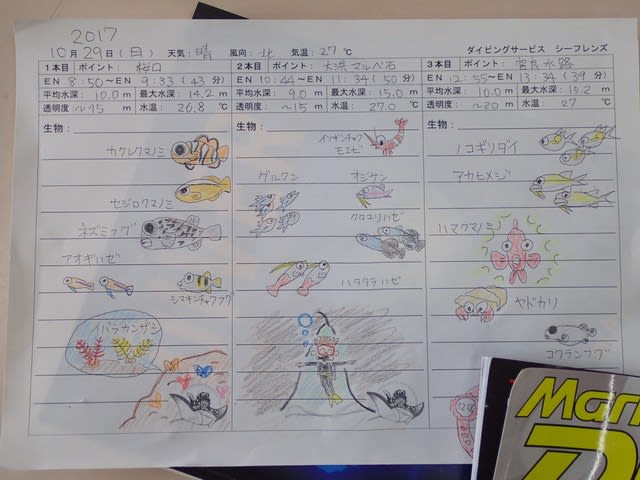 2017
10月29日(日) 天気:晴 風向:北 気温:27℃ ダイビングサービス シーフレンズ
1本目 ポイント: 桜口
EN 8:50~EN 9:33 (43分)
平均水深: 10.0 m 最大水深: 14.2 m
透明度: ~15 m 水温: 26.8 ℃
生物:
カクレクマノミ
セジロクマノミ
ネズミフグ
アオギハゼ
シマキンチャクフグ
イバラカンザシ
2本目 ポイント: 大浜マルベ石
EN 10:44~EN 11:34 (50分)
平均水深: 9.0 m 最大水深: 15.0 m
透明度: ~15 m 水温: 27.0 ℃
生物:
イソギンチャク
モエビ
グルクン オジサン
クロユリハゼ
ハタタテハゼ
3本目 ポイント: 宮良水路
EN 12:55~EN 13:34 (39分)
平均水深: 10.0 m 最大水深: 15.2 m
透明度: ~20 m 水温: 27 ℃
生物:
ノコギリダイ
アカヒメジ
ハマクマノミ
ヤドカリ
コクテンフグ
Mar